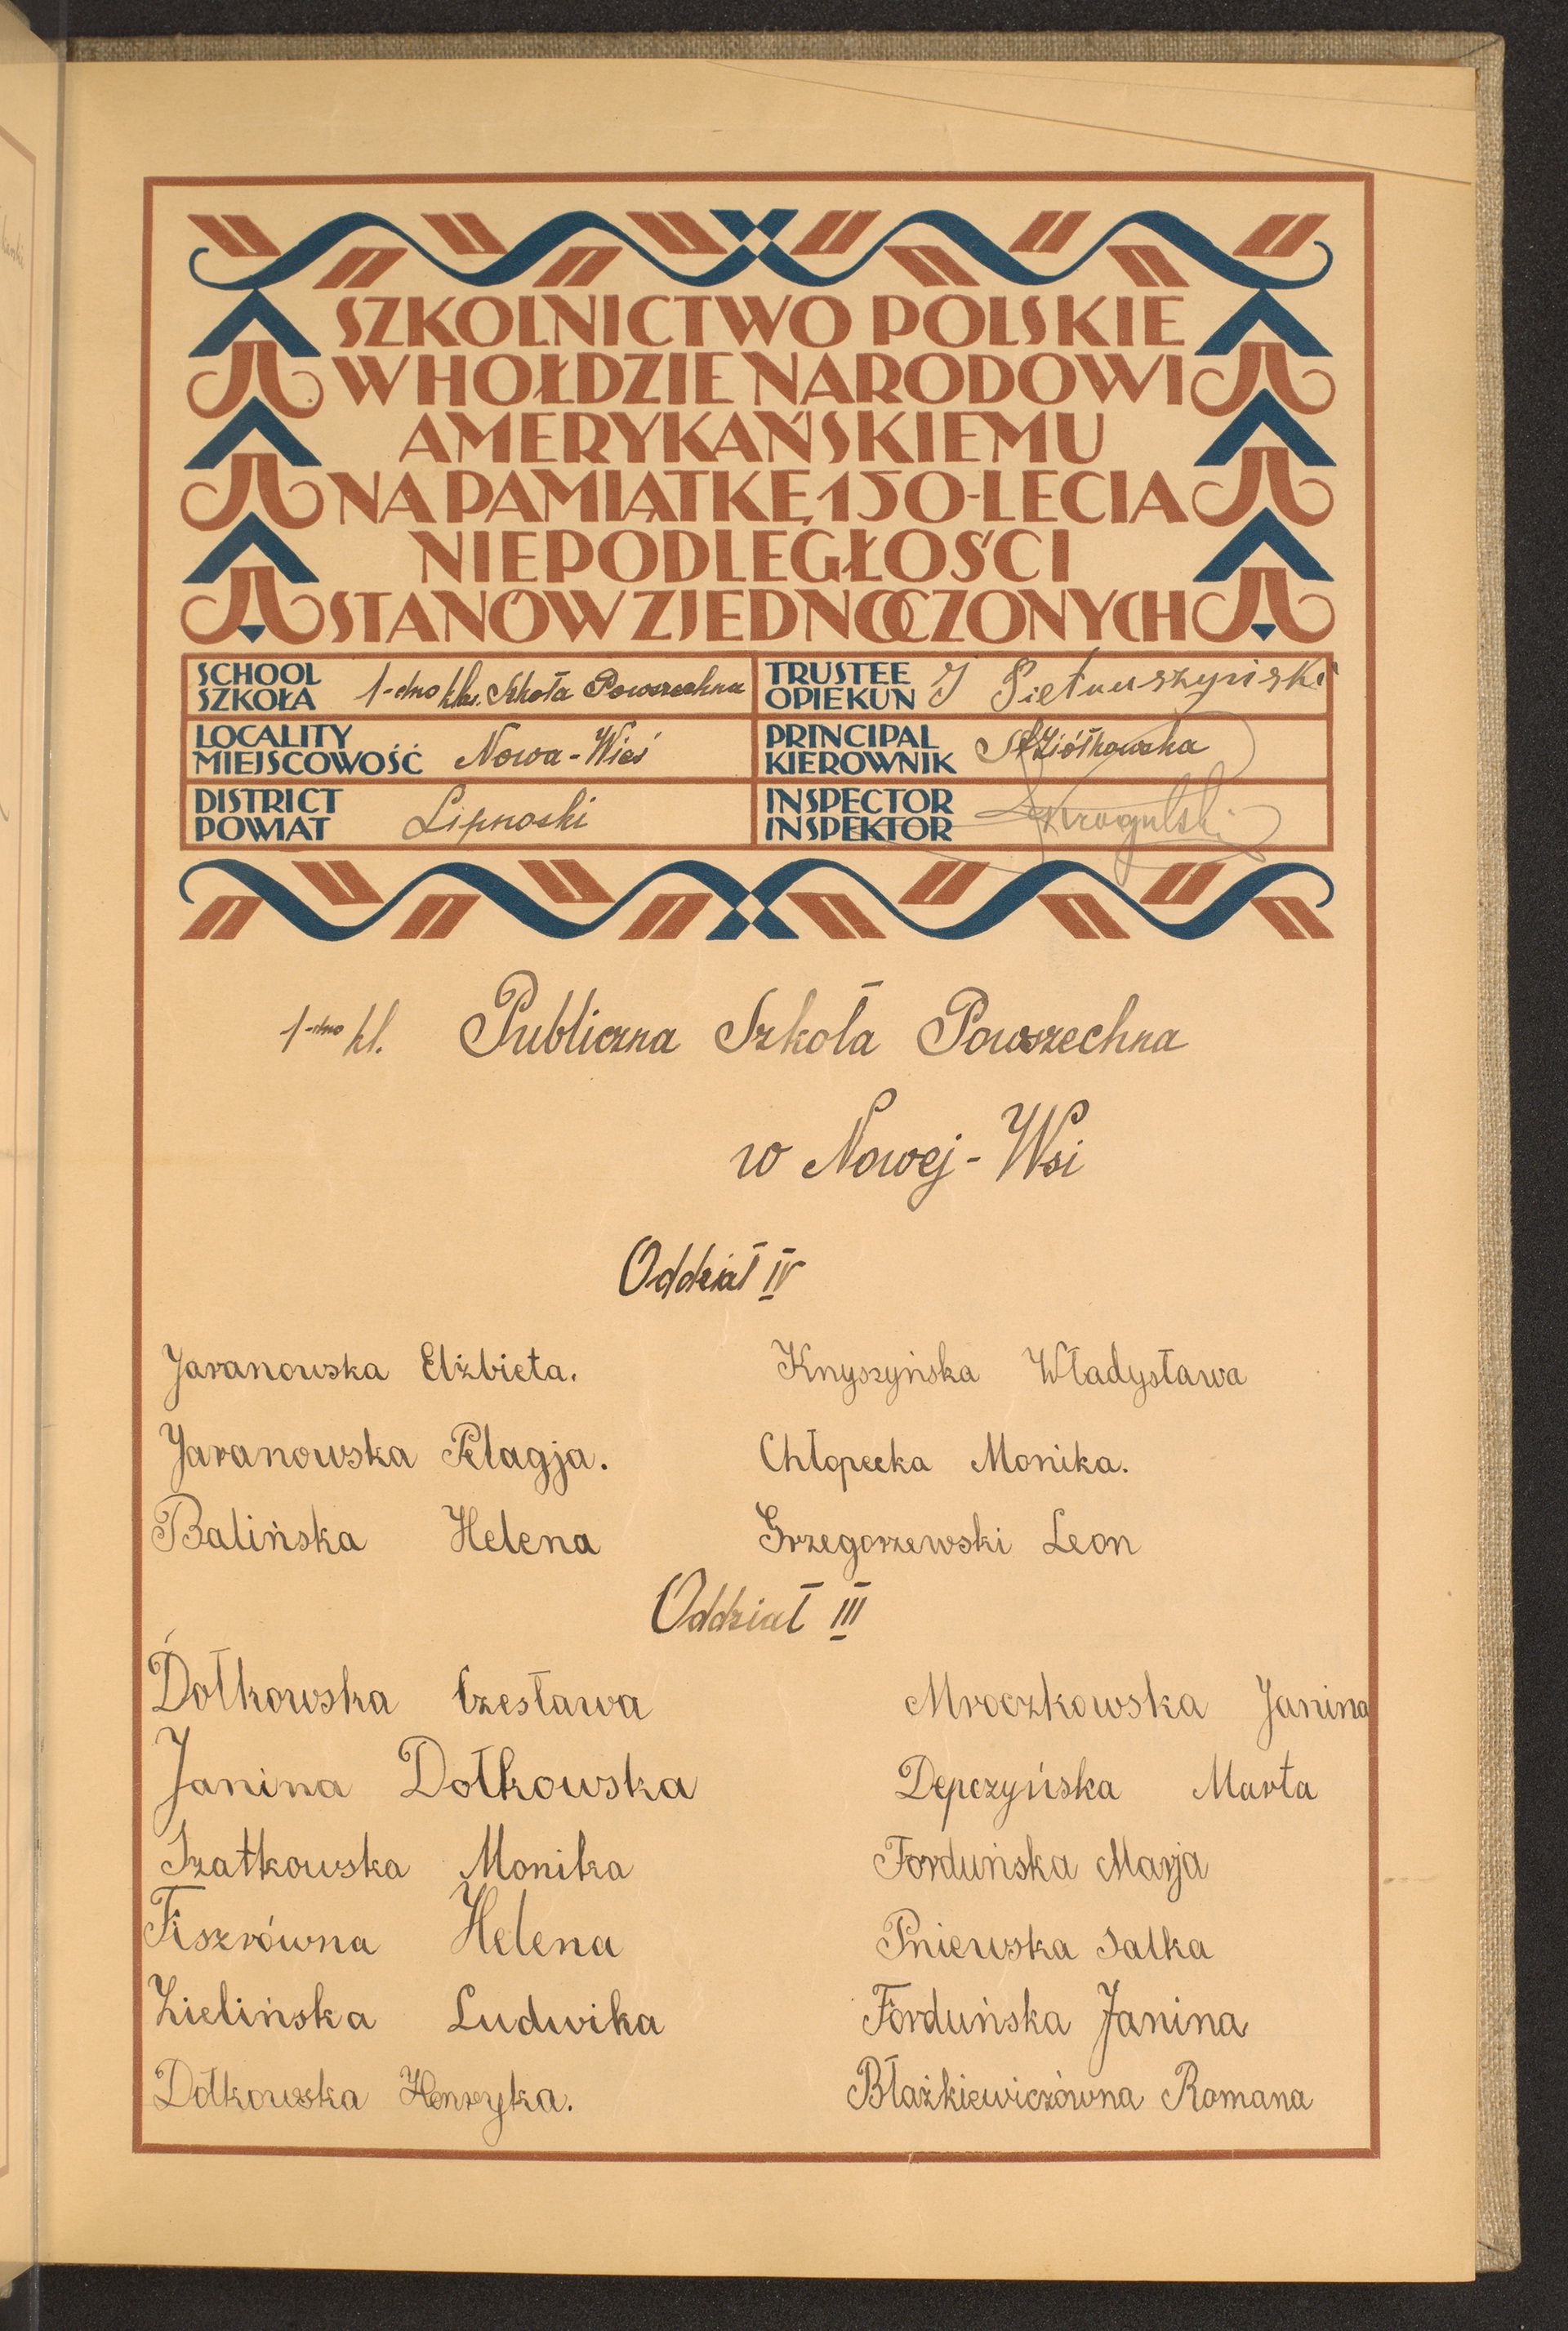 SZKOLNICTWO POLSKIE
W HOŁDZIE NARODOWI
AMERYKAŃSKIEMU
NA PAMIĄTKĘ 150-LECIA
NIEPODLEGŁOŚCI
STANÓW ZJEDNOCZONYCH
SCHOOL
SZKOŁA 1-dno kla. Szkoła Powszechna
TRUSTEE
OPIEKUN J
LOCALITY
MIEJSCOWOŚĆ Nowa-Wieś
PRINCIPAL
KIEROWNIK StZiółkowska
DISTRICT
POWIAT Lipnoski
INSPECTOR
INSPEKTOR
1-dno kl. Publiczna Szkoła Powszechna
w Nowej-Wsi
Oddział IV
Jaranowska Elżbieta. Knyszyńska Władysława
Jaranowska Pelagja. Chłopecka Monika.
Balińska Helena Grzegorzewski Leon
Oddział III
Dołkowska Czesława Mroczkowska Janina
Janina Dołkowska Depczyńska Marta
Szatkowska Monika Forduńska Marja
Fiszrówna Helena Pniewska Salka
Zielińska Ludwika Forduńska Janina
Dołkowska Henryka. Błażkiewiczówna Romana